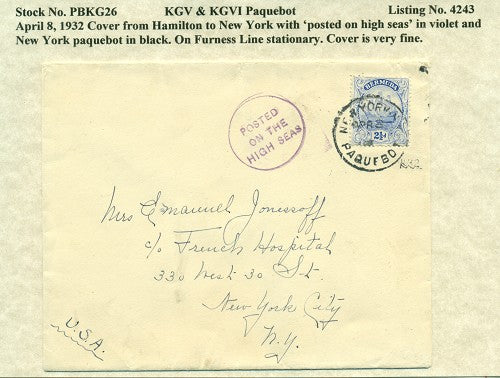 Stock No. PBKG26 KGV & KGVI Paquebot Listing No. 4243
April 8, 1932 Cover from Hamilton to New York with ‘posted on high seas’ in violet and
New York paquebot in black. On Furness Line stationary. Cover is very fine.
POSTED
ON THE
HIGH SEAS
BERMUDA
2½d
NEW YORK
APR
PAQUEBOT
1932
Mrs Emanuel Jonessoff
c/o French Hospital
330 West 30 St.
New York City
N.Y.
U.S.A.